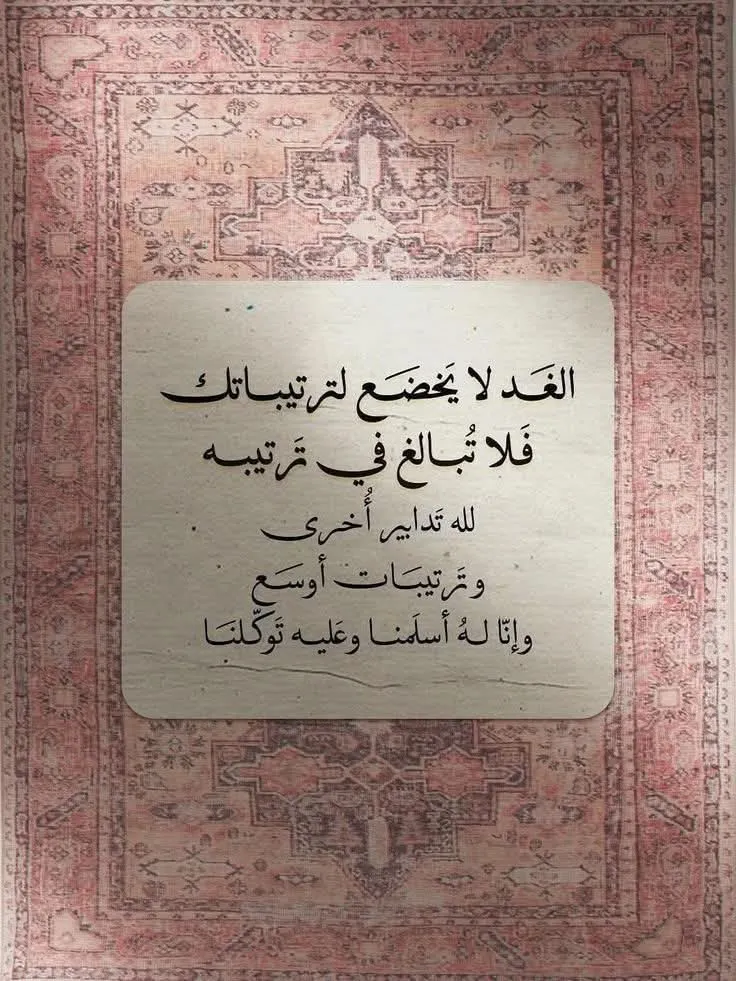 الغَد لا يَخضَع لترتيباتك
فَلا تُبالغ في تَرتيبه
لله تَدابير أُخرى
وتَرتيبَات أوسَع
وإنّا لهُ أسلَمنا وعَليه تَوكّلنَا